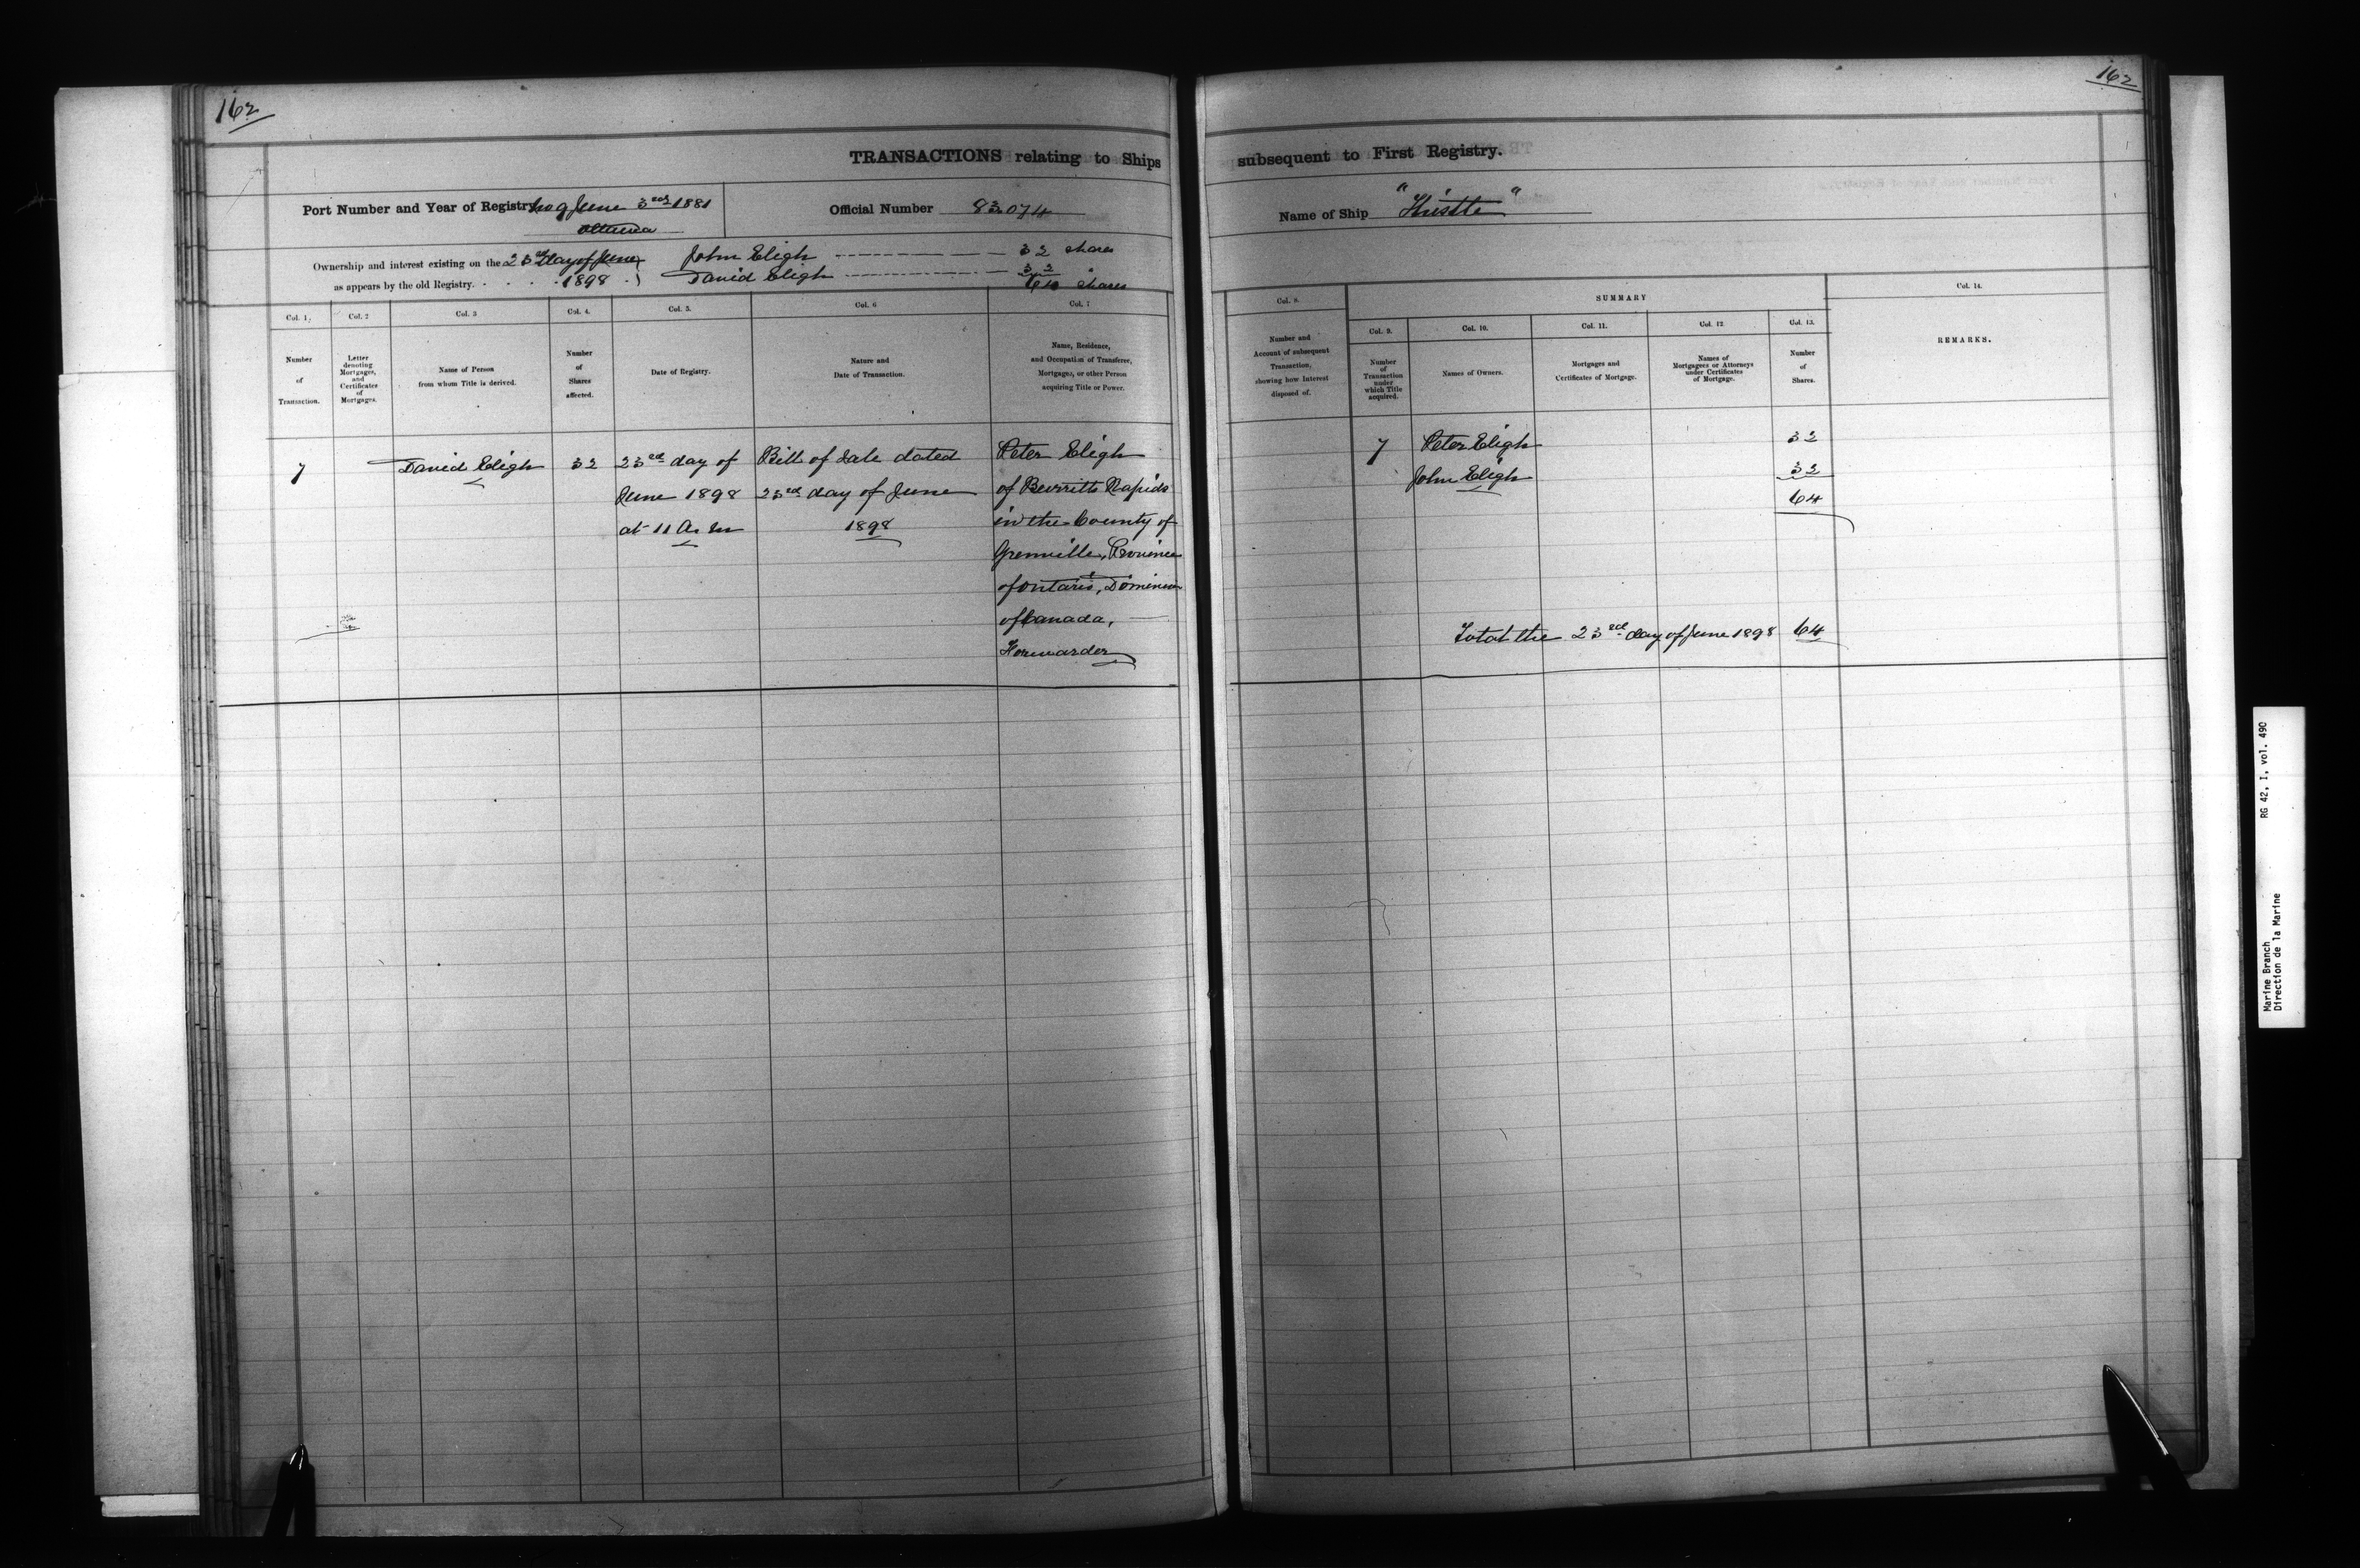 162
162
TRANSACTIONS relating to Ships
subsequent to First Registry.
Port Number and Year of Registry No 9 June 3rd 1881
Ottawa
Official Number 83.074
Name of Ship
Ownership and interest existing on the 23rd day of June
1898
as appears by the old Registry.
John Eligh 32 shares
David Eligh 32 "
64 shares
Col. 1.
Col. 2
Col. 3
Col. 4.
Col. 5.
Col. 6
Col. 7
Number
of
Transaction.
Letter
denoting
Mortgages,
and
Certificates
of
Mortgages.
Name of Person
from whom Title is derived.
Number
of
Shares
affected.
Date of Registry.
Nature and
Date of Transaction.
Name, Residence,
and Occupation of Transferee,
Mortgagee, or other Person
acquiring Title or Power.
7
David Eligh
32
23rd day of
June 1898
at 11 A. M
Bill of Sale dated
23rd day of June
1898
Peter Eligh
of Burritts Rapids
in the County of
Grenville, Province
of Ontario, Dominion
of Canada,
Forwarder
Col. 8.
SUMMARY
Col. 14.
Col. 9.
Col. 10.
Col. 11.
Col. 12
Col. 13.
Number and
Account of subsequent
Transaction,
showing how Interest
disposed of.
Number
of
Transaction
under
which Title
acquired.
Names of Owners.
Mortgages and
Certificates of Mortgage.
Names of
Mortgagees or Attorneys
under Certificates
of Mortgage.
Number
of
Shares.
REMARKS.
7
Peter Eligh
32
John Eligh
32
64
Total the 23rd day of June 1898 64
Marine Branch RG 42, I, vol. 490
Direction de la Marine